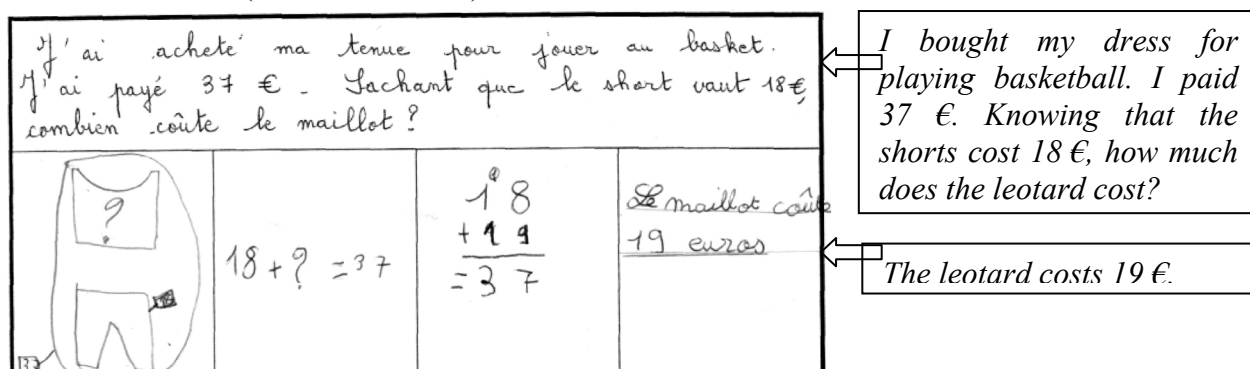 J'ai acheté ma tenue pour jouer au basket.
J'ai payé 37 €. Sachant que le short vaut 18€,
combien coûte le maillot?
?
37
18 + ? = 37
1
18
+ 19
= 37
Le maillot coûte
19 euros
I bought my dress for
playing basketball. I paid
37 €. Knowing that the
shorts cost 18 €, how much
does the leotard cost?
The leotard costs 19 €.